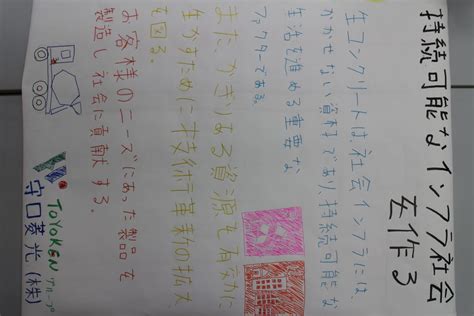 持続可能なインフラ社会
を作る
生コンクリートは、社会インフラには、
かかせない資材であり、持続可能な
生活を進める重要な
ファクターである。
また、かぎりある資源を有効に
生かすために技術行事業の拡大
を図る。
お客様のニーズにあった製品を
製造し社会に貢献する。
TOYOKEN グループ
守口菱光(株)